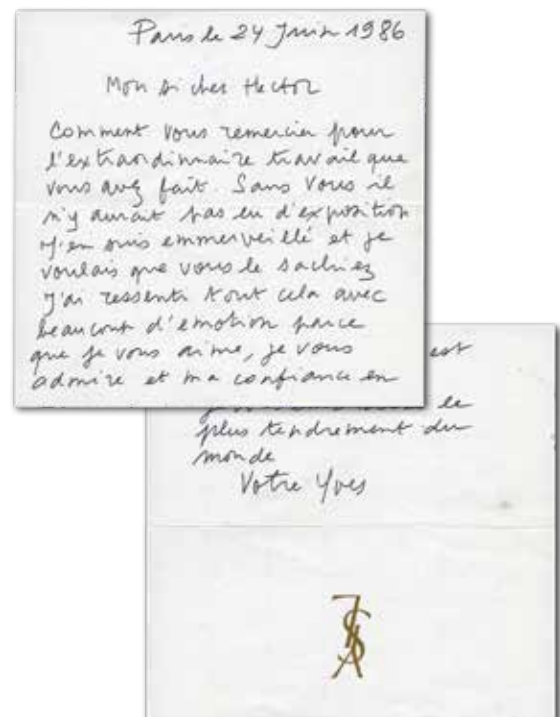 Paris le 24 Juin 1986
Mon si cher Hector
Comment vous remercier pour
l'extraordinnaire travail que
vous avez fait. Sans vous il
n'y aurait pas eu d'exposition
J'en suis emmerveillé et je
voulais que vous le sachiez
J'ai ressenti tout cela avec
beaucoup d'emotion parce
que je vous aime, je vous
admire et ma confiance en
est
le
plus tendrement du
monde
Votre Yves
YSL